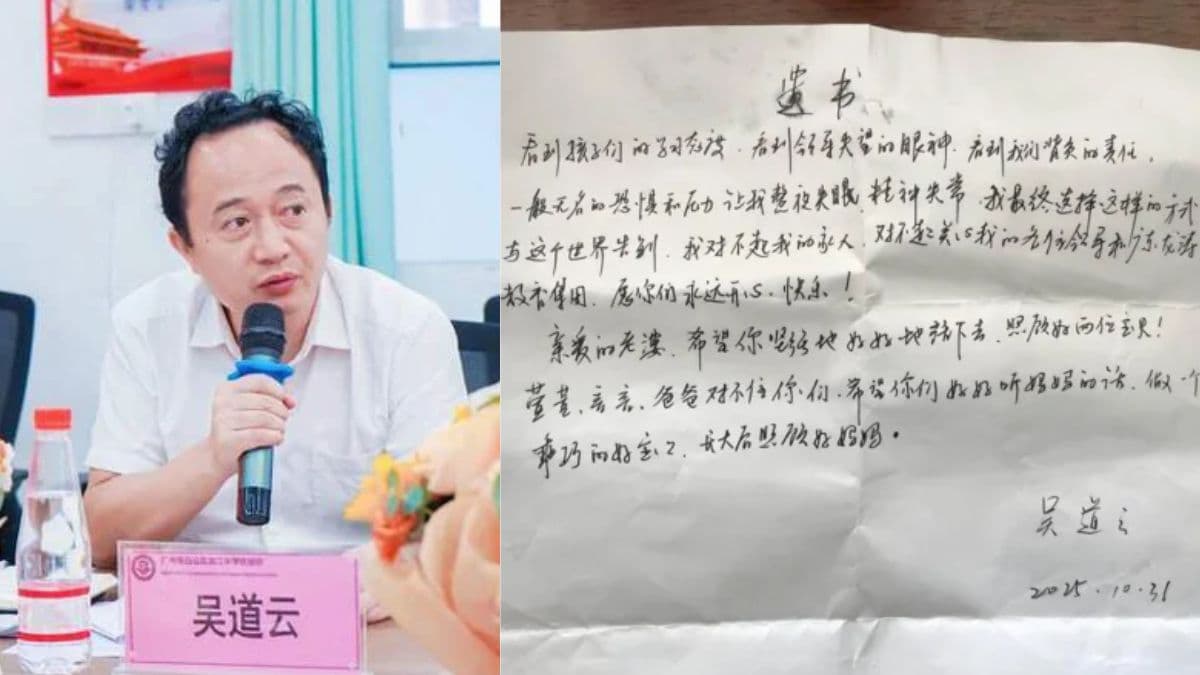 吴道云
遗书
看到孩子们的学习态度、看到领导失望的眼神、看到我们背负的责任,
一股无名的恐惧和压力让我整夜失眠,精神失常,我最终选择这样的方式
与这个世界告别,我对不起我的家人,对不起关心我的各位领导和广东龙涛
教育集团,愿你们永远开心、快乐!
亲爱的老婆,希望你坚强地好好地活下去,照顾好两位宝贝!
萱萱、言言,爸爸对不住你们,希望你们好好听妈妈的话,做一个
乖巧的好宝々,长大后照顾好妈妈。
吴道云
2025.10.31